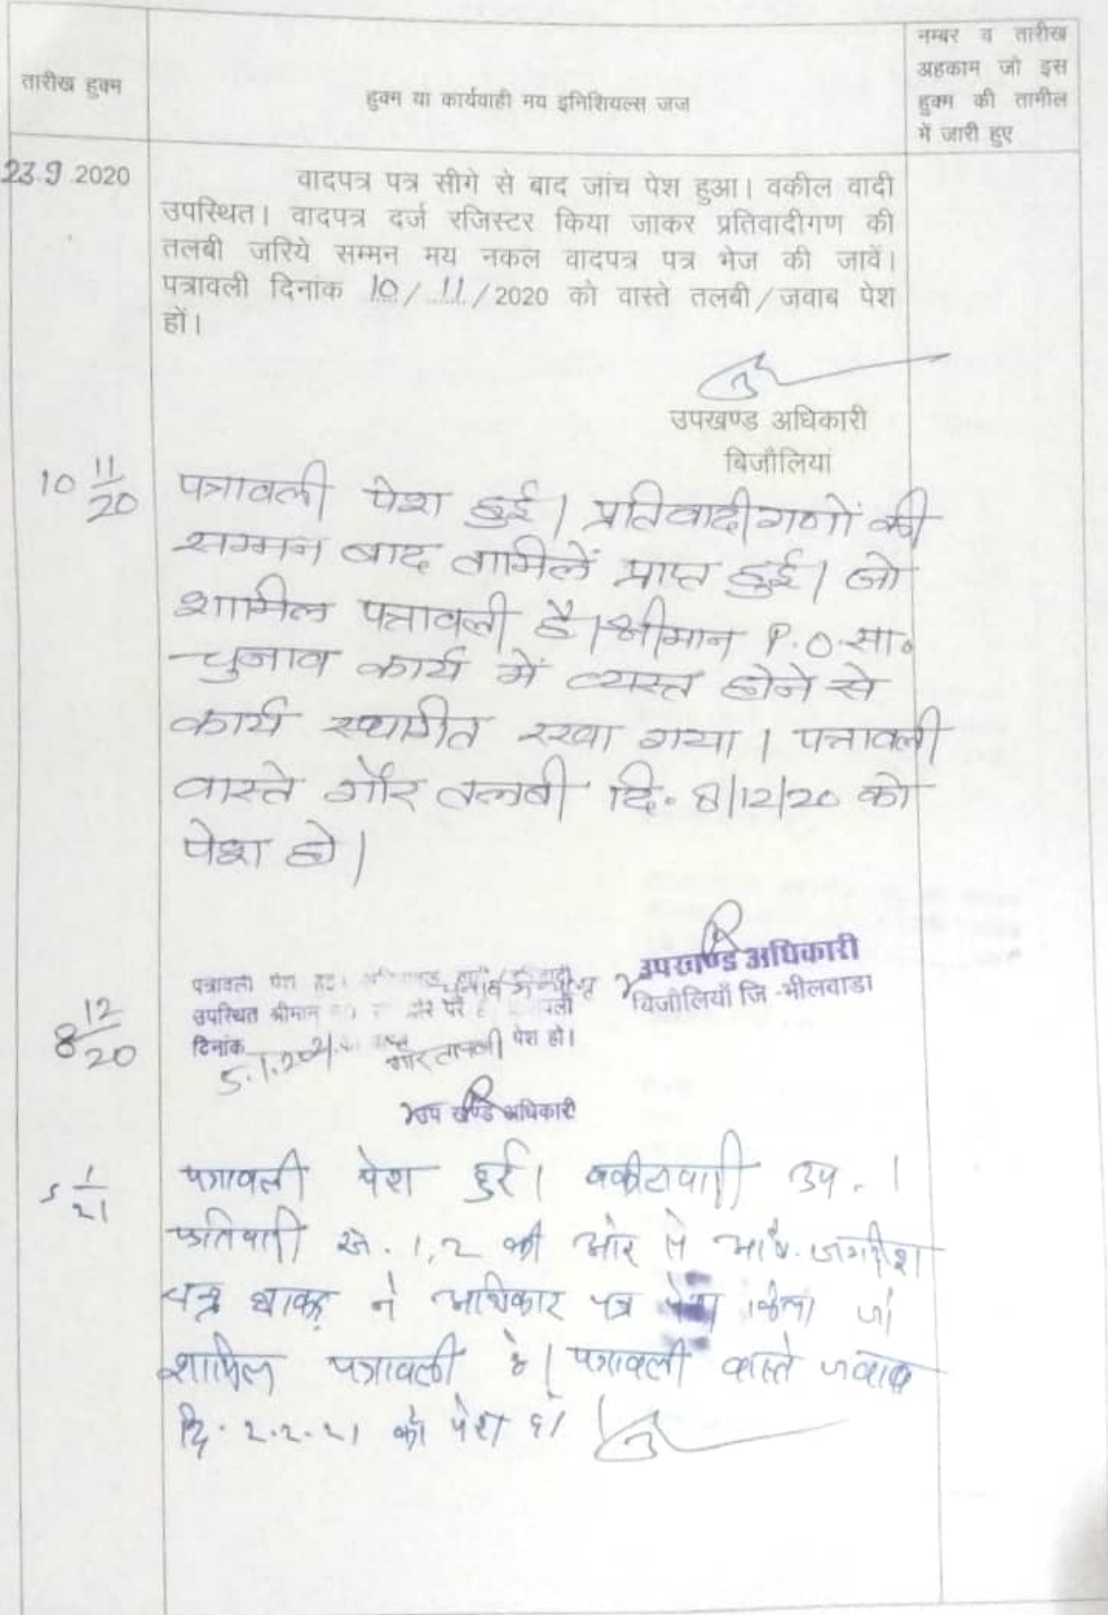 तारीख हुक्म
हुक्म या कार्यवाही मय इनिशियल्स जज
नम्बर व तारीख
अहकाम जो इस
हुक्म की तामील
में जारी हुए
23.9.2020
वादपत्र पत्र सीगे से बाद जांच पेश हुआ। वकील वादी
उपस्थित। वादपत्र दर्ज रजिस्टर किया जाकर प्रतिवादीगण की
तलबी जरिये सम्मन मय नकल वादपत्र पत्र भेज की जावें।
पत्रावली दिनांक 10/11/2020 को वास्ते तलबी/जवाब पेश
हों।
उपखण्ड अधिकारी
बिजौलियां
10 11/20
पत्रावली पेश हुई। प्रतिवादीगणों की
सम्मन बाद तामिलें प्राप्त हुई। जो
शामिल पत्रावली है। श्रीमान P.O. सा०
चुनाव कार्य में व्यस्त होने से
कार्य स्थगित रखा गया। पत्रावली
वास्ते गौर तलबी दि. 8/12/20 को
पेश हो।
उपखण्ड अधिकारी
बिजौलियाँ जि-भीलवाडा
8 12/20
पत्रावली पेश हुई।
उपस्थित श्रीमान
दिनांक 5.1.2021 गौर तलबी पेश हो।
उप खण्ड अधिकारी
5 1/21
पत्रावली पेश हुई। वकील वादी उप.।
प्रतिवादी सं. 1,2 की ओर से अधि. जगदीश
चन्द्र धाकड़ ने अधिकार पत्र पेश किया जो
शामिल पत्रावली है। पत्रावली वास्ते जवाब
दि. 2.2.21 को पेश हो